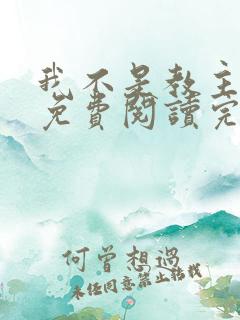 我不是教主
免費閱讀完
何曾想過
未经同意禁止转载